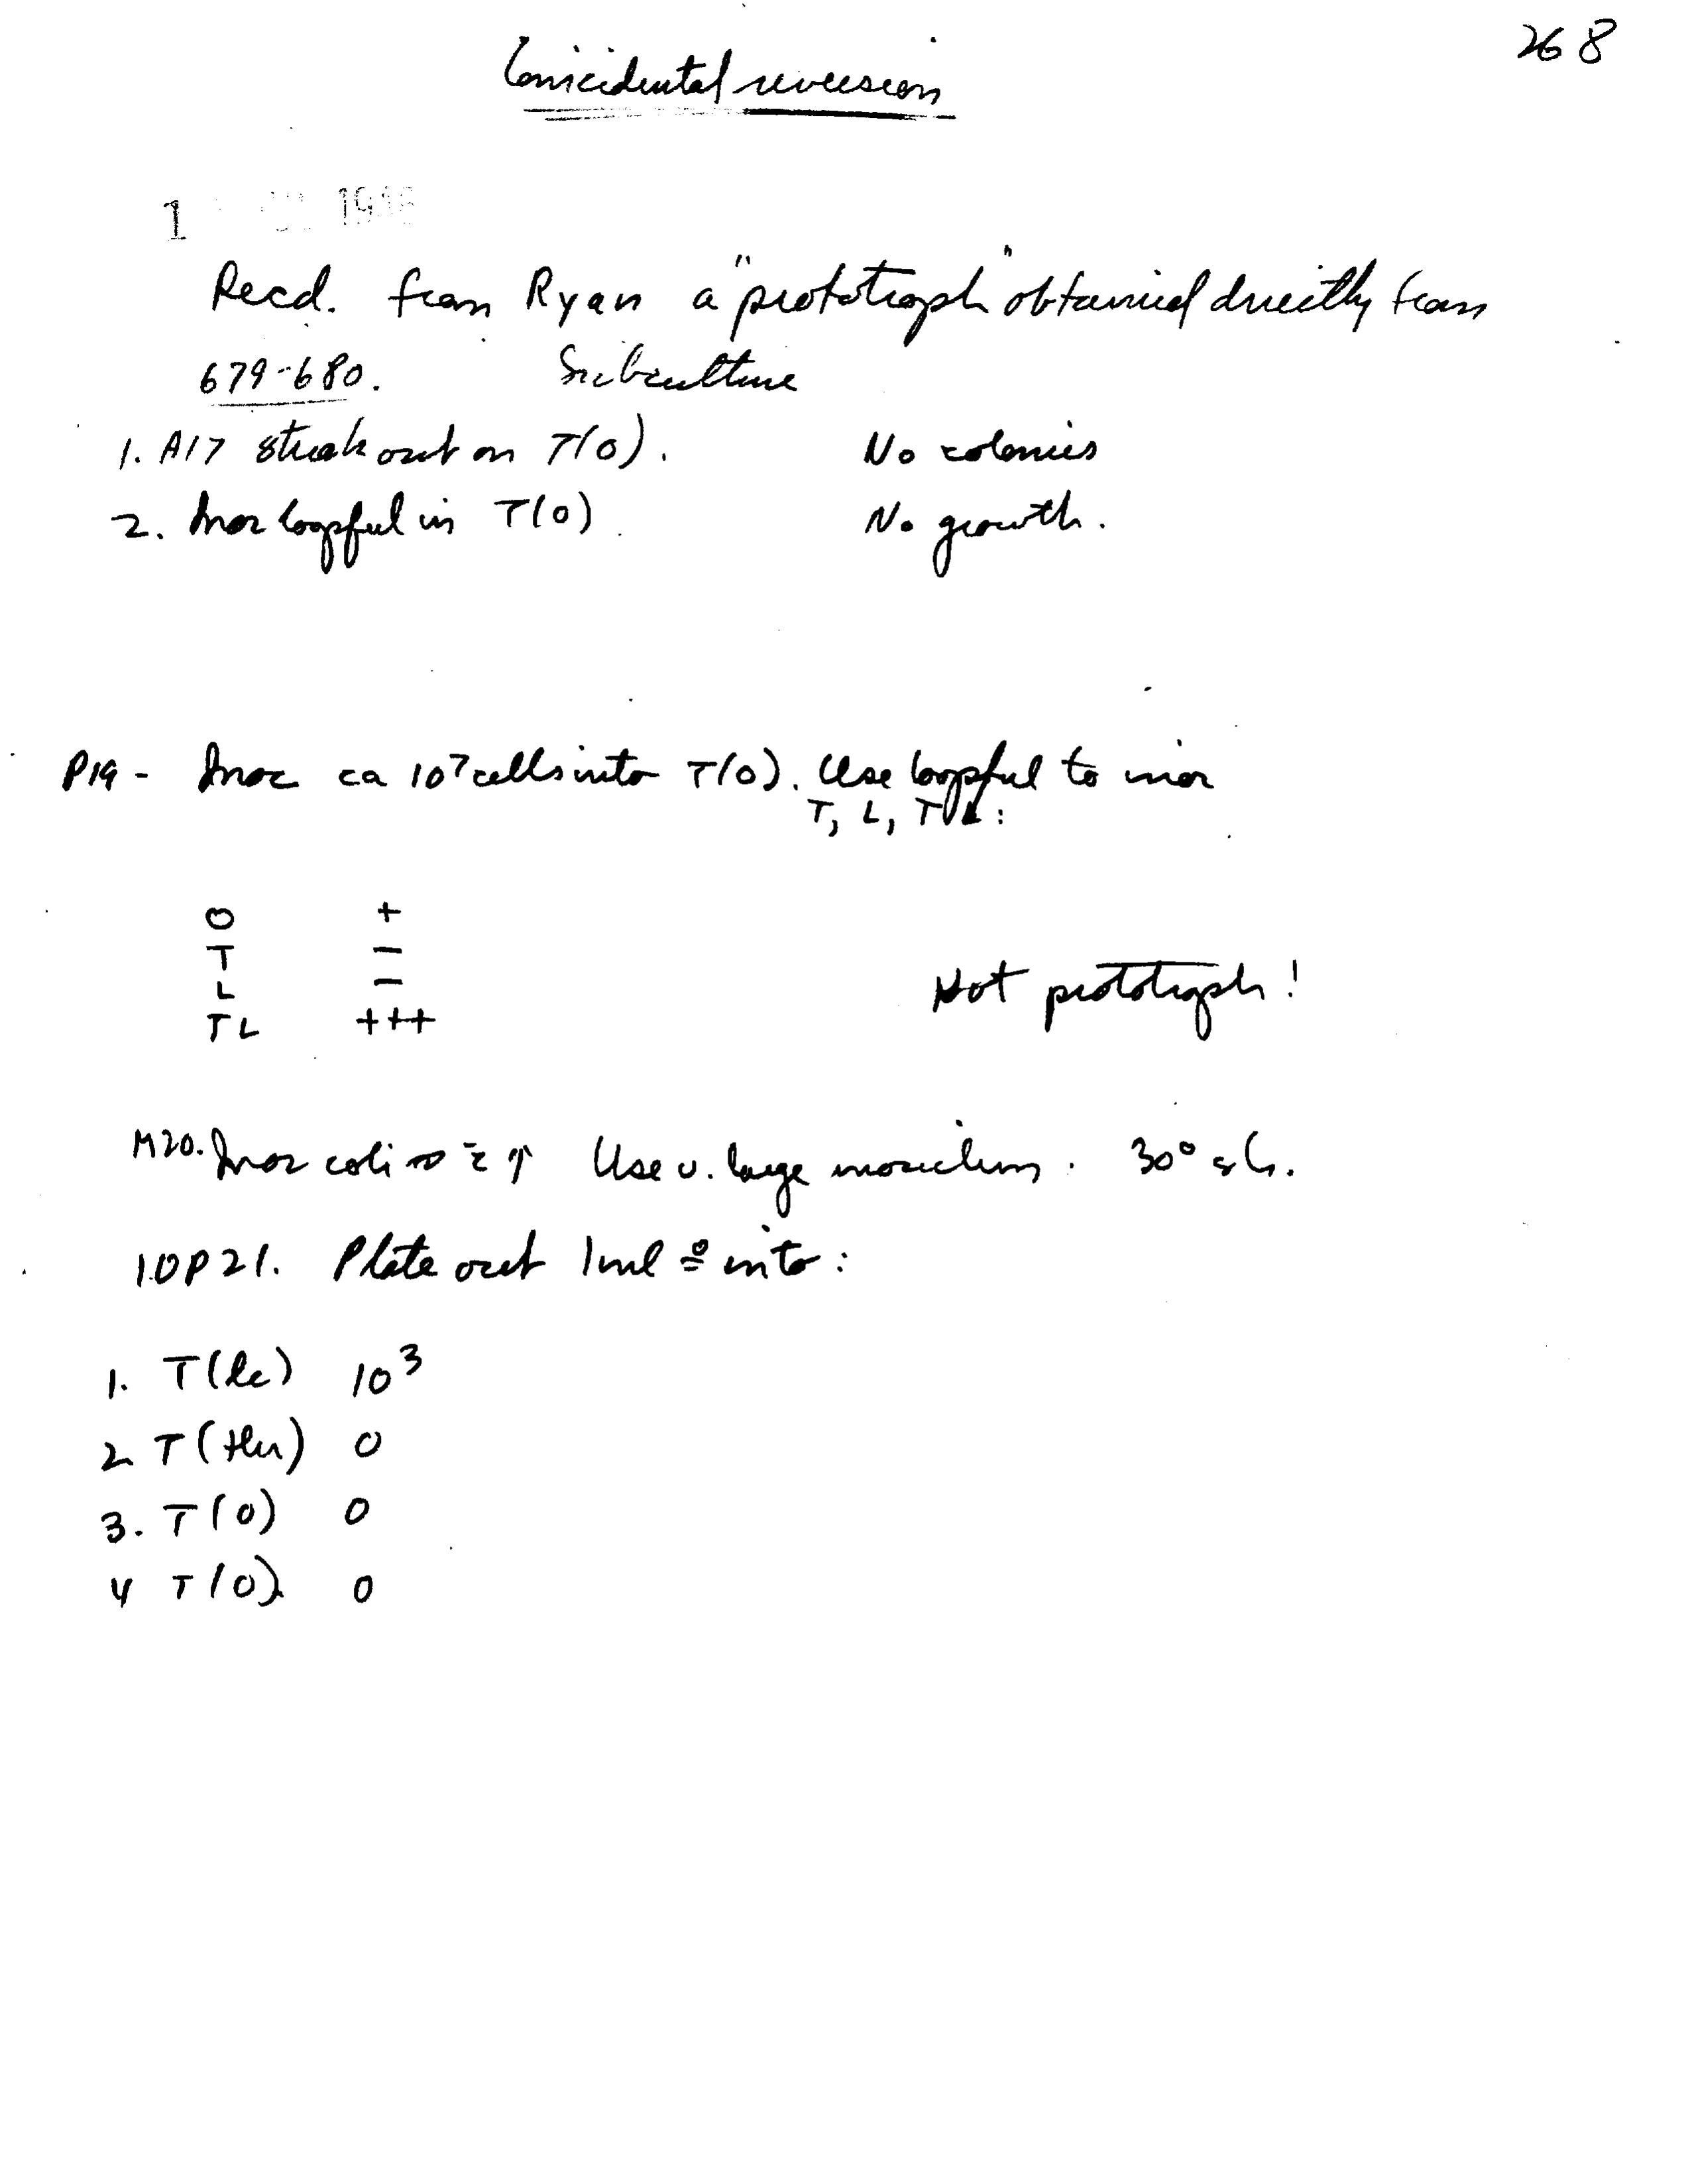 268
Coincidental reversion
1 1946
Recd. from Ryan a "prototroph" obtained directly from
679-680. Subculture
1. A17 streak out on T(0). No colonies
2. Inoc loopful in T(0) No growth.
P19 - Inoc ca 10⁷ cells into T(0). Use loopful to inoc
T, L, TL:
O +
T −
L −
TL +++
Not prototroph!
M20. Inoc coli Use v. large inoculum. 30°
10P21. Plate out 1ml into:
1. T(le) 10³
2 T(thr) 0
3. T(0) 0
4 T(0) 0